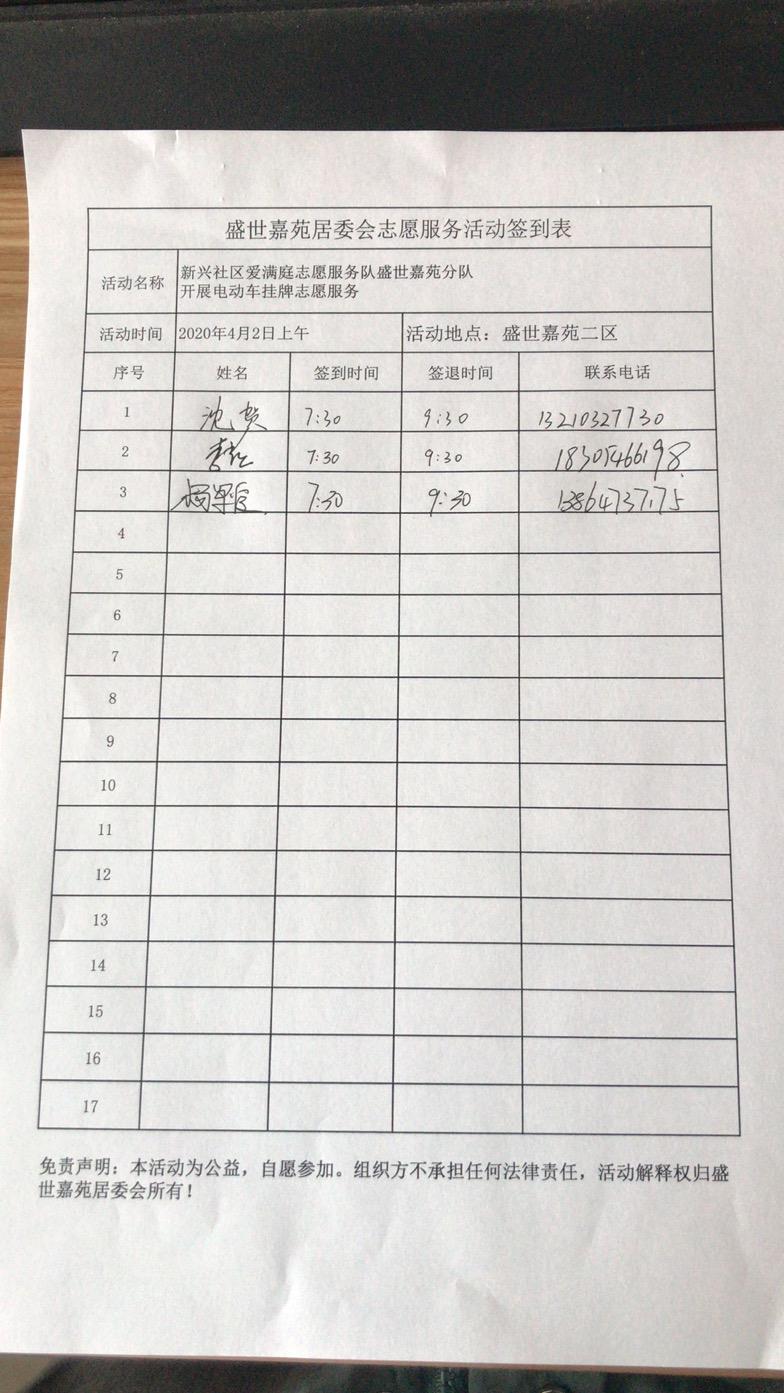 盛世嘉苑居委会志愿服务活动签到表
活动名称 新兴社区爱满庭志愿服务队盛世嘉苑分队
开展电动车挂牌志愿服务
活动时间 2020年4月2日上午 活动地点：盛世嘉苑二区
序号 姓名 签到时间 签退时间 联系电话
1 沈贺 7:30 9:30 13210327730
2 7:30 9:30 18305466198
3 7:30 9:30
4
5
6
7
8
9
10
11
12
13
14
15
16
17
免责声明：本活动为公益，自愿参加。组织方不承担任何法律责任，活动解释权归盛
世嘉苑居委会所有！